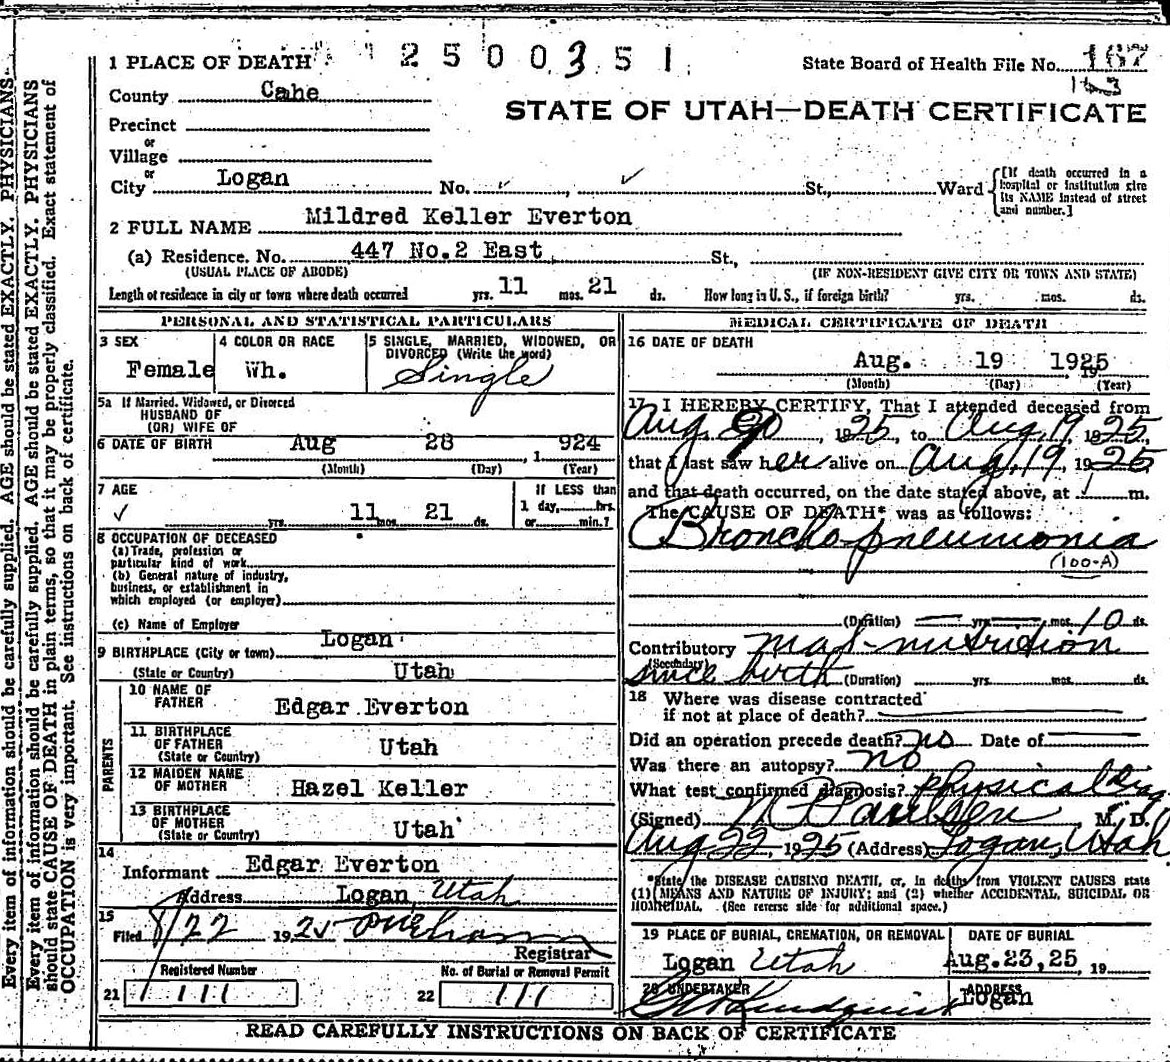 1 PLACE OF DEATH 2 5 0 0 3 5 1 State Board of Health File No. 167
163
County Cahe
STATE OF UTAH—DEATH CERTIFICATE
Precinct
or
Village
or
City Logan No. St., Ward
[If death occurred in a hospital or institution give its NAME instead of street and number.]
2 FULL NAME Mildred Keller Everton
(a) Residence. No. 447 No.2 East St.,
(USUAL PLACE OF ABODE) (IF NON-RESIDENT GIVE CITY OR TOWN AND STATE)
Length of residence in city or town where death occurred yrs. 11 mos. 21 ds. How long in U. S., if foreign birth? yrs. mos. ds.
PERSONAL AND STATISTICAL PARTICULARS
3 SEX Female
4 COLOR OR RACE Wh.
5 SINGLE, MARRIED, WIDOWED, OR
DIVORCED (Write the word)
Single
5a If Married, Widowed, or Divorced
HUSBAND OF
(OR) WIFE OF
6 DATE OF BIRTH Aug 28 , 1 924
(Month) (Day) (Year)
7 AGE
yrs. 11 mos. 21 ds.
If LESS than
1 day, hrs.
or min.?
8 OCCUPATION OF DECEASED
(a) Trade, profession or
particular kind of work
(b) General nature of industry,
business, or establishment in
which employed (or employer)
(c) Name of Employer
9 BIRTHPLACE (City or town) Logan
(State or Country) Utah
PARENTS
10 NAME OF
FATHER Edgar Everton
11 BIRTHPLACE
OF FATHER
(State or Country) Utah
12 MAIDEN NAME
OF MOTHER Hazel Keller
13 BIRTHPLACE
OF MOTHER
(State or Country) Utah
14
Informant Edgar Everton
Address Logan, Utah
15
Filed 8/22 1925
Registrar
Registered Number
21 111
No. of Burial or Removal Permit
22 111
MEDICAL CERTIFICATE OF DEATH
16 DATE OF DEATH
Aug. 19 1925
19
(Month) (Day) (Year)
17 I HEREBY CERTIFY, That I attended deceased from
Aug , 1925, to Aug 19, 1925,
that I last saw her alive on Aug. 19, 1925
and that death occurred, on the date stated above, at 1 m.
The CAUSE OF DEATH* was as follows:
Broncho pneumonia
(100-A)
(Duration) yrs. mos. 10 ds.
Contributory mal-nutrition
(Secondary)
since birth (Duration) yrs. mos. ds.
18 Where was disease contracted
if not at place of death?
Did an operation precede death? no Date of
Was there an autopsy? no
What test confirmed diagnosis? physical Diag
(Signed) M. D.
Aug 22, 1925 (Address) Logan, Utah
*State the DISEASE CAUSING DEATH, or, in deaths from VIOLENT CAUSES state
(1) MEANS AND NATURE OF INJURY; and (2) whether ACCIDENTAL, SUICIDAL OR
HOMICIDAL. (See reverse side for additional space.)
19 PLACE OF BURIAL, CREMATION, OR REMOVAL
Logan Utah
DATE OF BURIAL
Aug.23,25 , 19
20 UNDERTAKER
ADDRESS
Logan
READ CAREFULLY INSTRUCTIONS ON BACK OF CERTIFICATE
Every item of information should be carefully supplied. AGE should be stated EXACTLY. PHYSICIANS
Every item of information should be carefully supplied. AGE should be stated EXACTLY. PHYSICIANS
should state CAUSE OF DEATH in plain terms, so that it may be properly classified. Exact statement of
OCCUPATION is very important. See instructions on back of certificate.